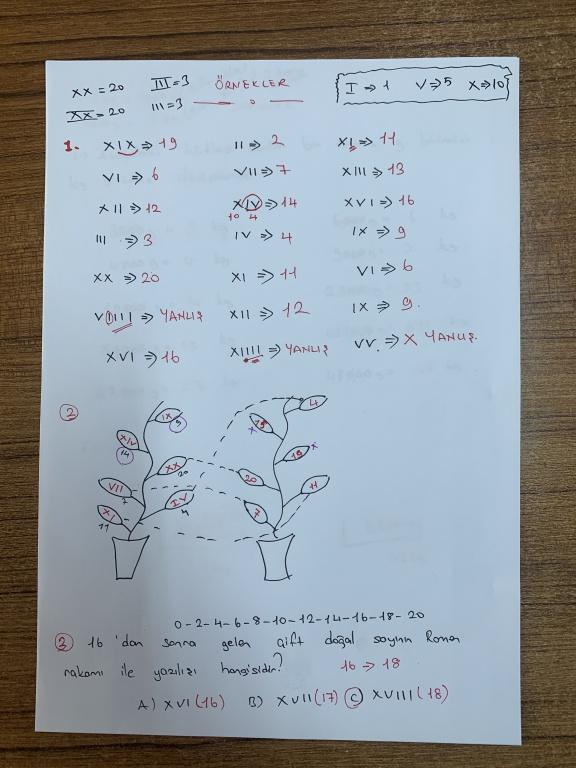 XX = 20 III = 3 ÖRNEKLER I ⇒ 1 V ⇒ 5 X ⇒ 10
XX = 20 III = 3
1. XIX ⇒ 19 II ⇒ 2 XI ⇒ 11
VI ⇒ 6 VII ⇒ 7 XIII ⇒ 13
XII ⇒ 12 XIV ⇒ 14 XVI ⇒ 16
10 4
III ⇒ 3 IV ⇒ 4 IX ⇒ 9
XX ⇒ 20 XI ⇒ 11 VI ⇒ 6
VIIII ⇒ YANLIŞ XII ⇒ 12 IX ⇒ 9.
XVI ⇒ 16 XIIII ⇒ YANLIŞ VV. ⇒ X YANLIŞ.
2
IX 9 4
XIV 14 19 x
XX 20 x
VII 7 20
IV 4 11
XI 11 7
0-2-4-6-8-10-12-14-16-18-20
3 16'dan sonra gelen çift doğal sayının Romen
rakamı ile yazılışı hangisidir? 16 ⇒ 18
A) XVI (16) B) XVII (17) C) XVIII (18)